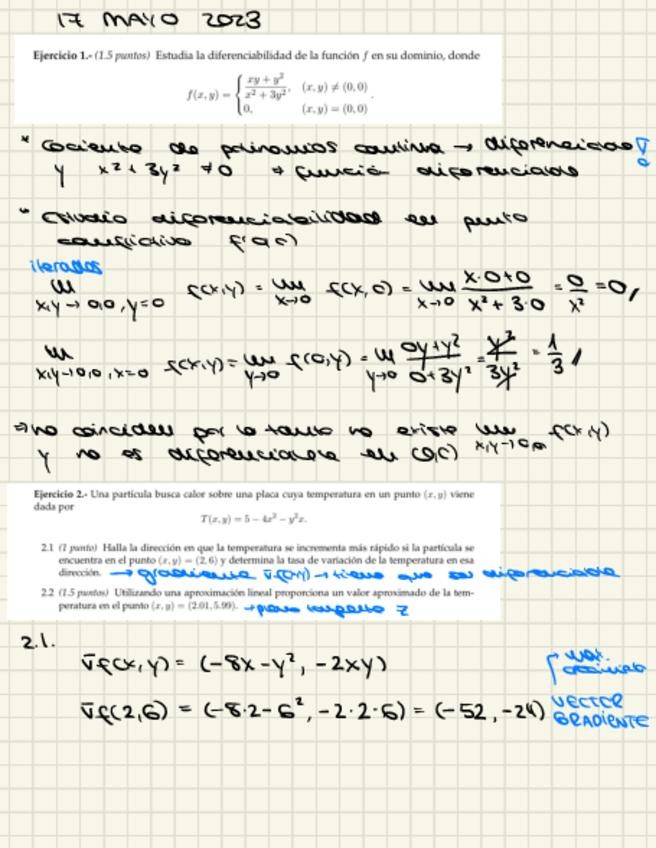 17 MAYO 2023
Ejercicio 1.- (1.5 puntos) Estudia la diferenciabilidad de la función f en su dominio, donde
f(x, y) = { (xy + y²)/(x² + 3y²), (x, y) ≠ (0, 0)
0, (x, y) = (0, 0) .
* Cociente de polinomios continua → diferenciable ∇
y x² + 3y² ≠ 0 → función diferenciable
* Estudio diferenciabilidad en punto
conflictivo f(0,0)
iterados
lim x,y→0,0, y=0 f(x,y) = lim x→0 f(x,0) = lim x→0 (x·0+0)/(x²+3·0) = 0/x² = 0,
lim x,y→0,0, x=0 f(x,y) = lim y→0 f(0,y) = lim y→0 (0y+y²)/(0+3y²) = y²/3y² = 1/3
⇒ no coinciden por lo tanto no existe lim x,y→0,0 f(x,y)
y no es diferenciable en (0,0)
Ejercicio 2.- Una partícula busca calor sobre una placa cuya temperatura en un punto (x, y) viene
dada por
T(x, y) = 5 − 4x² − y²x.
2.1 (1 punto) Halla la dirección en que la temperatura se incrementa más rápido si la partícula se
encuentra en el punto (x, y) = (2, 6) y determina la tasa de variación de la temperatura en esa
dirección. → gradiente ∇f(x,y) → tiene que ser diferenciable
2.2 (1.5 puntos) Utilizando una aproximación lineal proporciona un valor aproximado de la tem-
peratura en el punto (x, y) = (2.01, 5.99). → plano tangente z
2.1.
∇f(x,y) = (-8x-y², -2xy)
max.
∇f(2,6) = (-8·2-6², -2·2·6) = (-52, -24) VECTOR
GRADIENTE